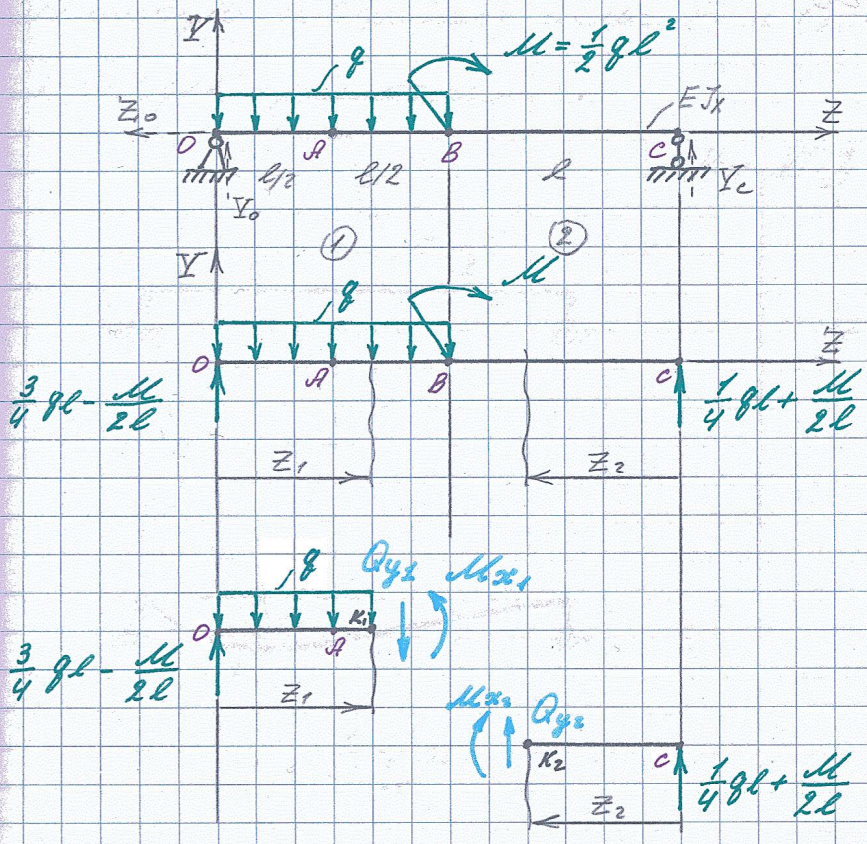 Y
q
M = 1/2 ql²
Z₁₀
O
A
B
EJx
C
Z
l/2
l/2
l
Y₀
Yc
①
②
Y
q
M
O
A
B
C
Z
3/4 ql - M/2l
1/4 ql + M/2l
Z₁
Z₂
q
Qy₁
Mx₁
O
A
K₁
3/4 ql - M/2l
Z₁
Mx₂
Qy₂
K₂
C
1/4 ql + M/2l
Z₂